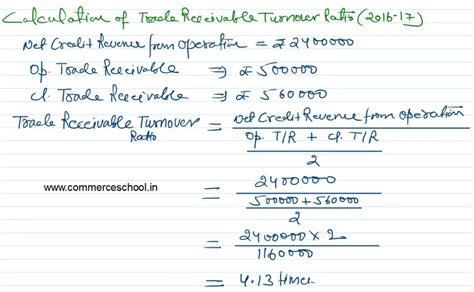 Calculation of Trade Receivable Turnover Ratio (2016-17)
Net Credit Revenue from operation = ₹ 2400000
Op. Trade Receivable ⇒ ₹ 500000
Cl. Trade Receivable ⇒ ₹ 560000
Trade Receivable Turnover Ratio = Net Credit Revenue from operation
Op. T/R + Cl. T/R
2
www.commerceschool.in
= 2400000
500000 + 560000
2
= 2400000 × 2
1160000
= 4.13 times